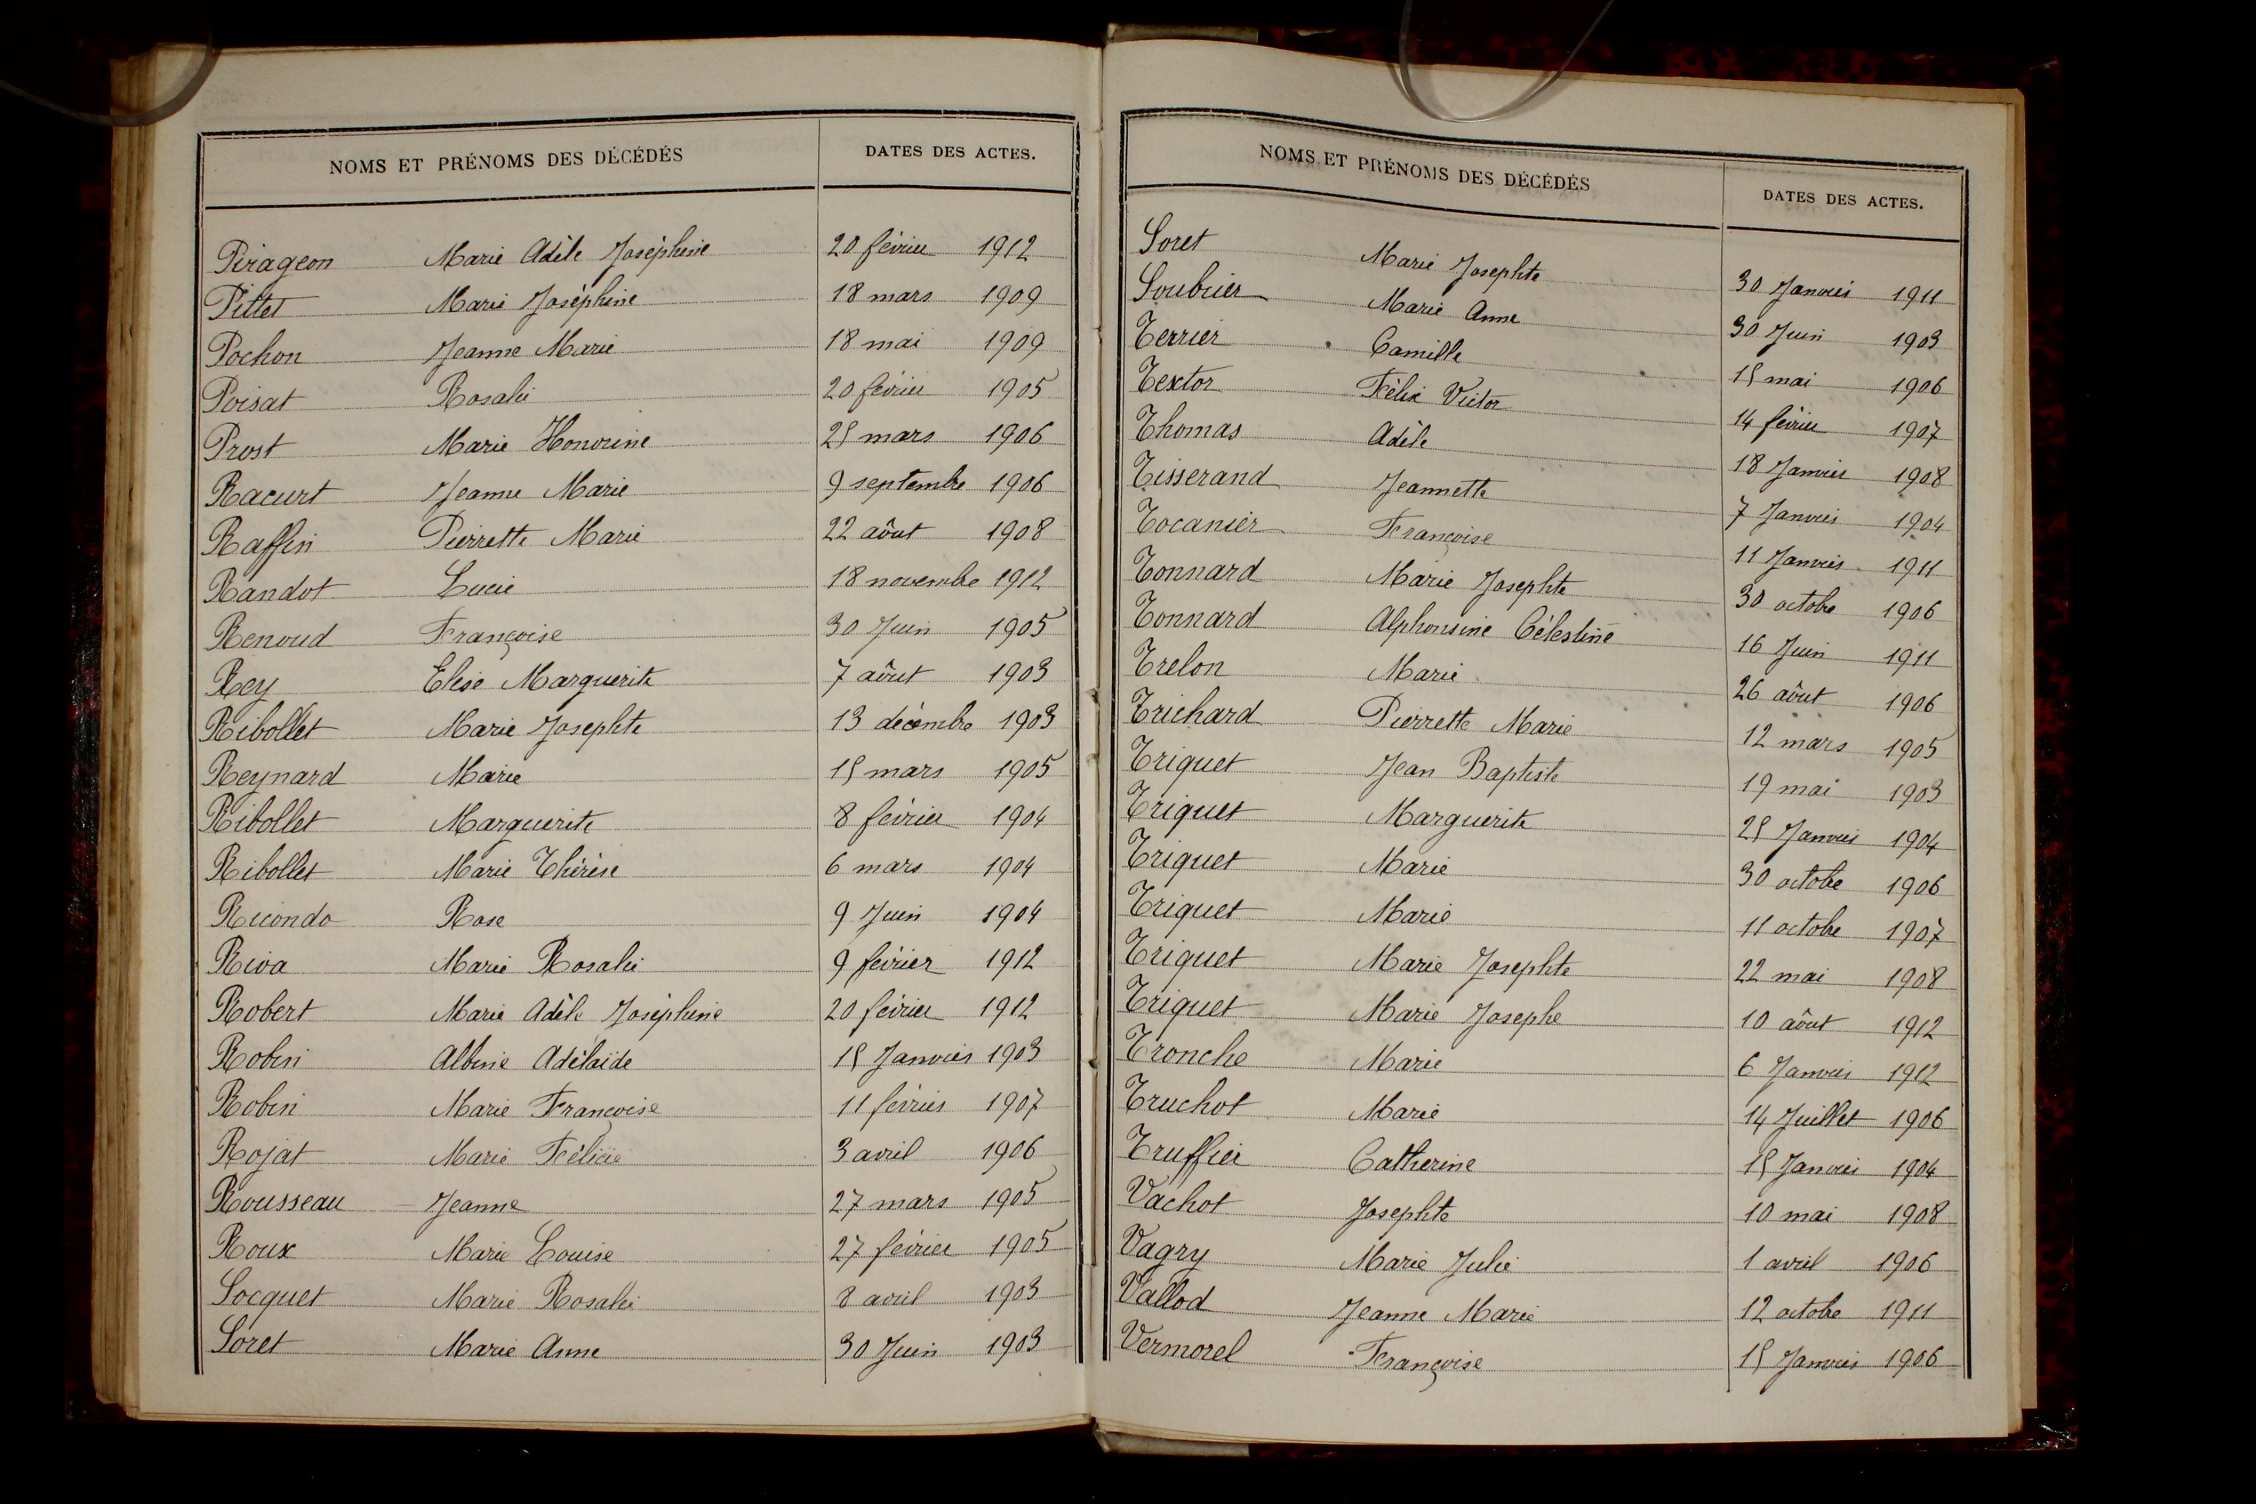 NOMS ET PRÉNOMS DES DÉCÉDÉS DATES DES ACTES.
Pirageon Marie Adèle Joséphine 20 février 1912
Pittet Marie Joséphine 18 mars 1909
Pochon Jeanne Marie 18 mai 1909
Poisat Rosalie 20 février 1905
Prost Marie Honorine 25 mars 1906
Racurt Jeanne Marie 9 septembre 1906
Raffin Pierrette Marie 22 aôut 1908
Randot Lucie 18 novembre 1912
Renoud Françoise 30 Juin 1905
Rey Elise Marguerite 7 aôut 1903
Ribollet Marie Josephte 13 décembre 1903
Reynard Marie 15 mars 1905
Ribollet Marguerite 8 février 1904
Ribollet Marie Thérèse 6 mars 1904
Ricondo Rose 9 Juin 1904
Riva Marie Rosalie 9 février 1912
Robert Marie Adèle Joséphine 20 février 1912
Robin Albine Adélaïde 15 Janvier 1903
Robin Marie Françoise 11 février 1907
Rojat Marie Félicie 3 avril 1906
Rousseau Jeanne 27 mars 1905
Roux Marie Louise 27 février 1905
Socquet Marie Rosalie 8 avril 1903
Soret Marie Anne 30 Juin 1903
NOMS ET PRÉNOMS DES DÉCÉDÉS DATES DES ACTES.
Soret Marie Josephte 30 Janvier 1911
Soubrier Marie Anne 30 Juin 1903
Terrier Camille 15 mai 1906
Textor Félix Victor 14 février 1907
Thomas Adèle 18 Janvier 1908
Tisserand Jeannette 7 Janvier 1904
Tocanier Françoise 11 Janvier 1911
Tonnard Marie Josephte 30 octobre 1906
Tonnard Alphonsine Célestine 16 Juin 1911
Trelon Marie 26 aôut 1906
Trichard Pierrette Marie 12 mars 1905
Triquet Jean Baptiste 19 mai 1903
Triquet Marguerite 25 Janvier 1904
Triquet Marie 30 octobre 1906
Triquet Marie 11 octobre 1907
Triquet Marie Josephte 22 mai 1908
Triquet Marie Josephe 10 aôut 1912
Tronche Marie 6 Janvier 1912
Truchot Marie 14 Juillet 1906
Truffier Catherine 15 Janvier 1904
Vachot Josephte 10 mai 1908
Vagry Marie Julie 1 avril 1906
Vallod Jeanne Marie 12 octobre 1911
Vermorel Françoise 15 Janvier 1906